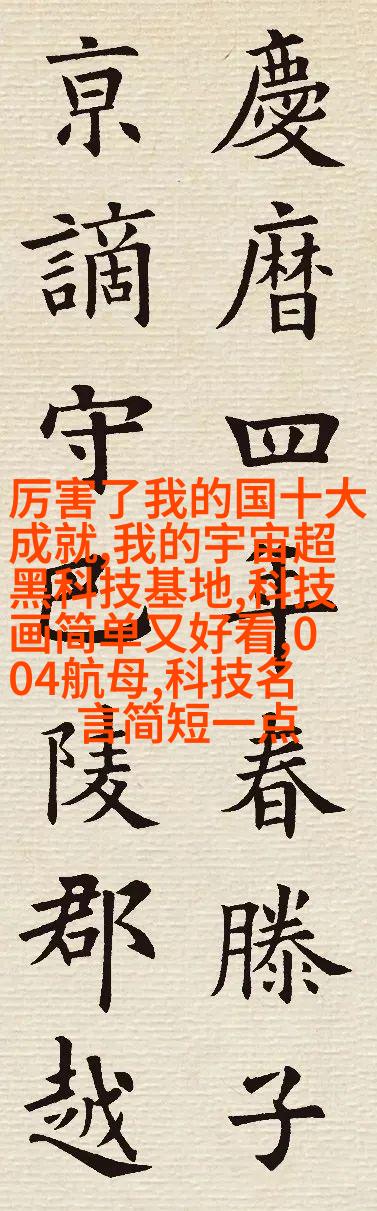 慶暦四年春滕子
亰謫守巴陵郡越
厉害了我的国十大
成就,我的宇宙超
黑科技基地,科技
画简单又好看,0
04航母,科技名
言简短一点